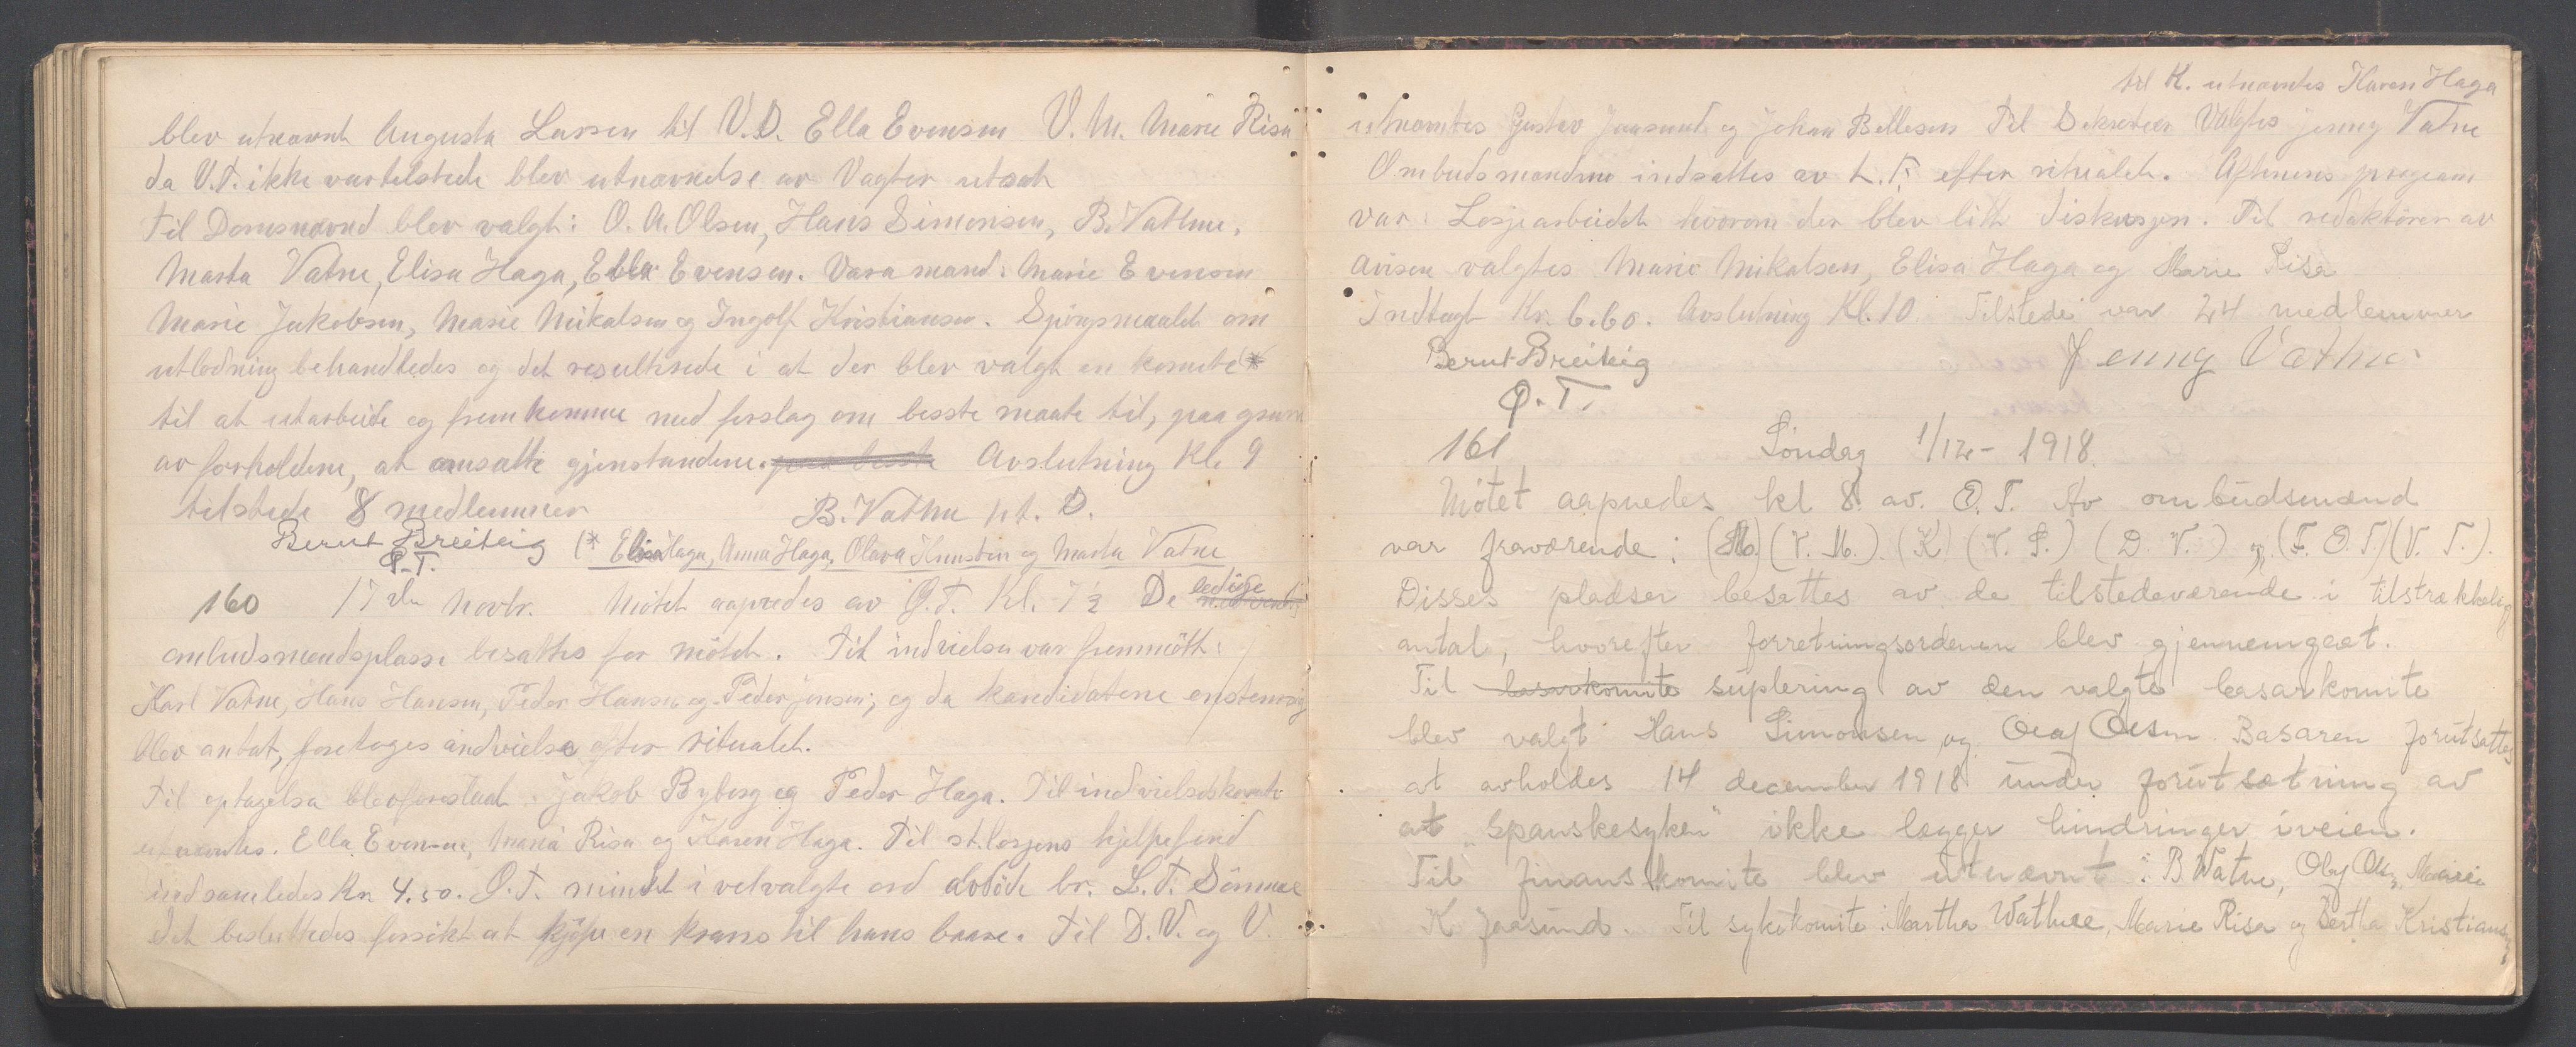 blev utnævnt Augusta Larsen til V.D. Ella Evensen V.M. Marie Risa
da V.T. ikke var tilstede blev utnævnelse av Vagter utsat
Til Domsnævnd blev valgt: O. A. Olsen, Hans Simonsen, B. Vathne,
Marta Vatne, Elisa Haga, Ella Evensen. Vara mænd: Marie Evensen
Marie Jakobsen, Marie Mikalsen og Ingolf Kristiansen. Spörgsmaalet om
utlodning behandledes og det resulterede i at der blev valgt en komite *
til at utarbeide og fremkomme med forslag om besste maate til, paa grund
av forholdene, at omsætte gjenstandene. paa beste Avslutning Kl. 9
tilstede 8 medlemmer B. Vathne p.t. D.
Berut Breiteig
O.T.
(* Elisa Haga, Anna Haga, Olava Knutsen og Marta Vatne
160 17de Novbr. Mötet aapnedes av O.T. Kl. 7½ De ledige
ombudsmendsplasse besattes for mötet. Til indvielse var fremmött:
Karl Vatne, Hans Hansen, Peder Hansen og Peder Jensen; og da kandidatene enstemmig
blev antat, foretoges indvielse efter ritualet.
Til optagelse blev forestaat Jakob Byberg og Peder Haga. Til indvielseskomite
utnævntes. Ella Evensen, Maria Risa og Karen Haga. Til st.losjens hjelpefond
indsamledes Kr 4.50. O.T. mindet i velvalgte ord avdöde br. L.T. Sömme
det besluttedes forsökt at kjöpe en krans til hans baare. Til D.V. og V.
til K. utnævntes Karen Haga
utnævntes Gustav Jaasund og Johan Bellesen Til Sekretær Valgtes Jenny Vatne
Ombudsmændene indsattes av L.T. efter ritualet. Aftenens program
var: Losjearbeidet hvorom der blev litt diskusjon. Til redaktörer av
avisen valgtes Marie Mikalsen, Elisa Haga og Marie Risa
Indtægt Kr. 6.60. Avslutning Kl. 10 Tilstede var 24 medlemmer
Berut Breiteig Jenny Vathne
O.T.
161 Söndag 1/12 - 1918.
Mötet aapnedes kl 8. av. O.T. Av ombudsmænd
var fraværende: (M.) (V. M.). (K) (V. S.) (D. V.) og (F. O.T.) (V. T.).
Disses pladser besattes av de tilstedeværende i tilstrækkelig
antal, hvorefter forretningsordenen blev gjennemgaat.
Til basarkomite suplering av den valgte basarkomite
blev valgt Hans Simonsen og Olaf Olsen. Basaren forutsattes
at avholdes 14 december 1918 under forutsætning av
at "Spanskesyken" ikke lægger hindringer iveien.
Til finanskomite blev utnævnt: B Watne, Olaf Olsen, Marie
K Jaasund. Til sykekomite: Martha Wathne, Marie Risa og Bertha Kristiansen